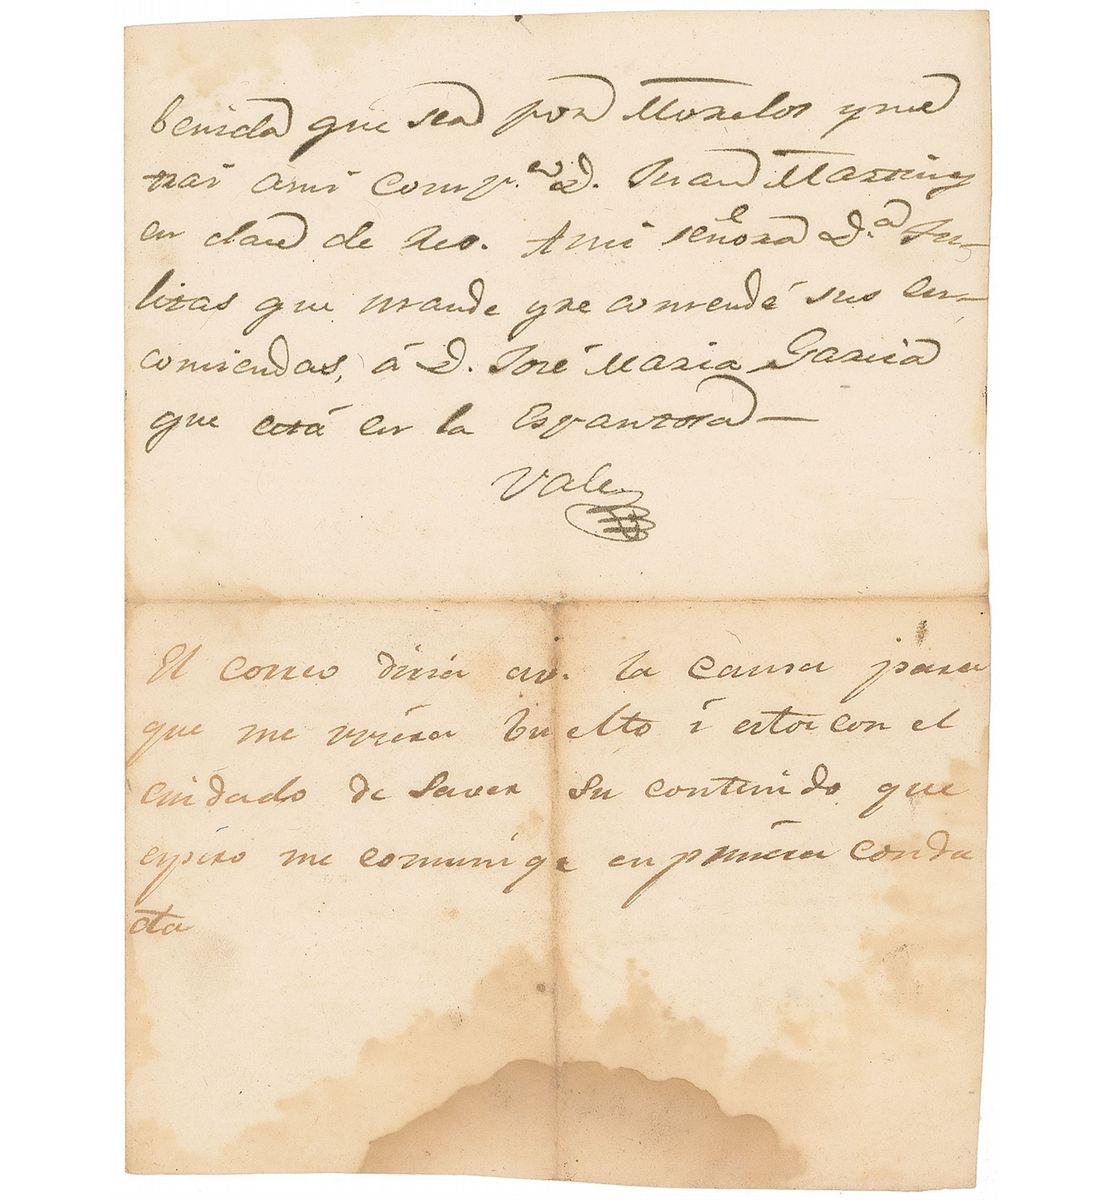 benida que sea por Morelos y me
trai a mi comp.e D. Juan Martiny
en clace de Reo. A mi señora D.a Ju-
litas que mande y recomende sus en-
comiendas, á D. José Maria Garcia
que está en la Espantosa
Vale
El correo diria la causa para
que me buelto i estoi con el
cuidado de Saver Su contenido que
espero me comuniqe en primera condu
cta